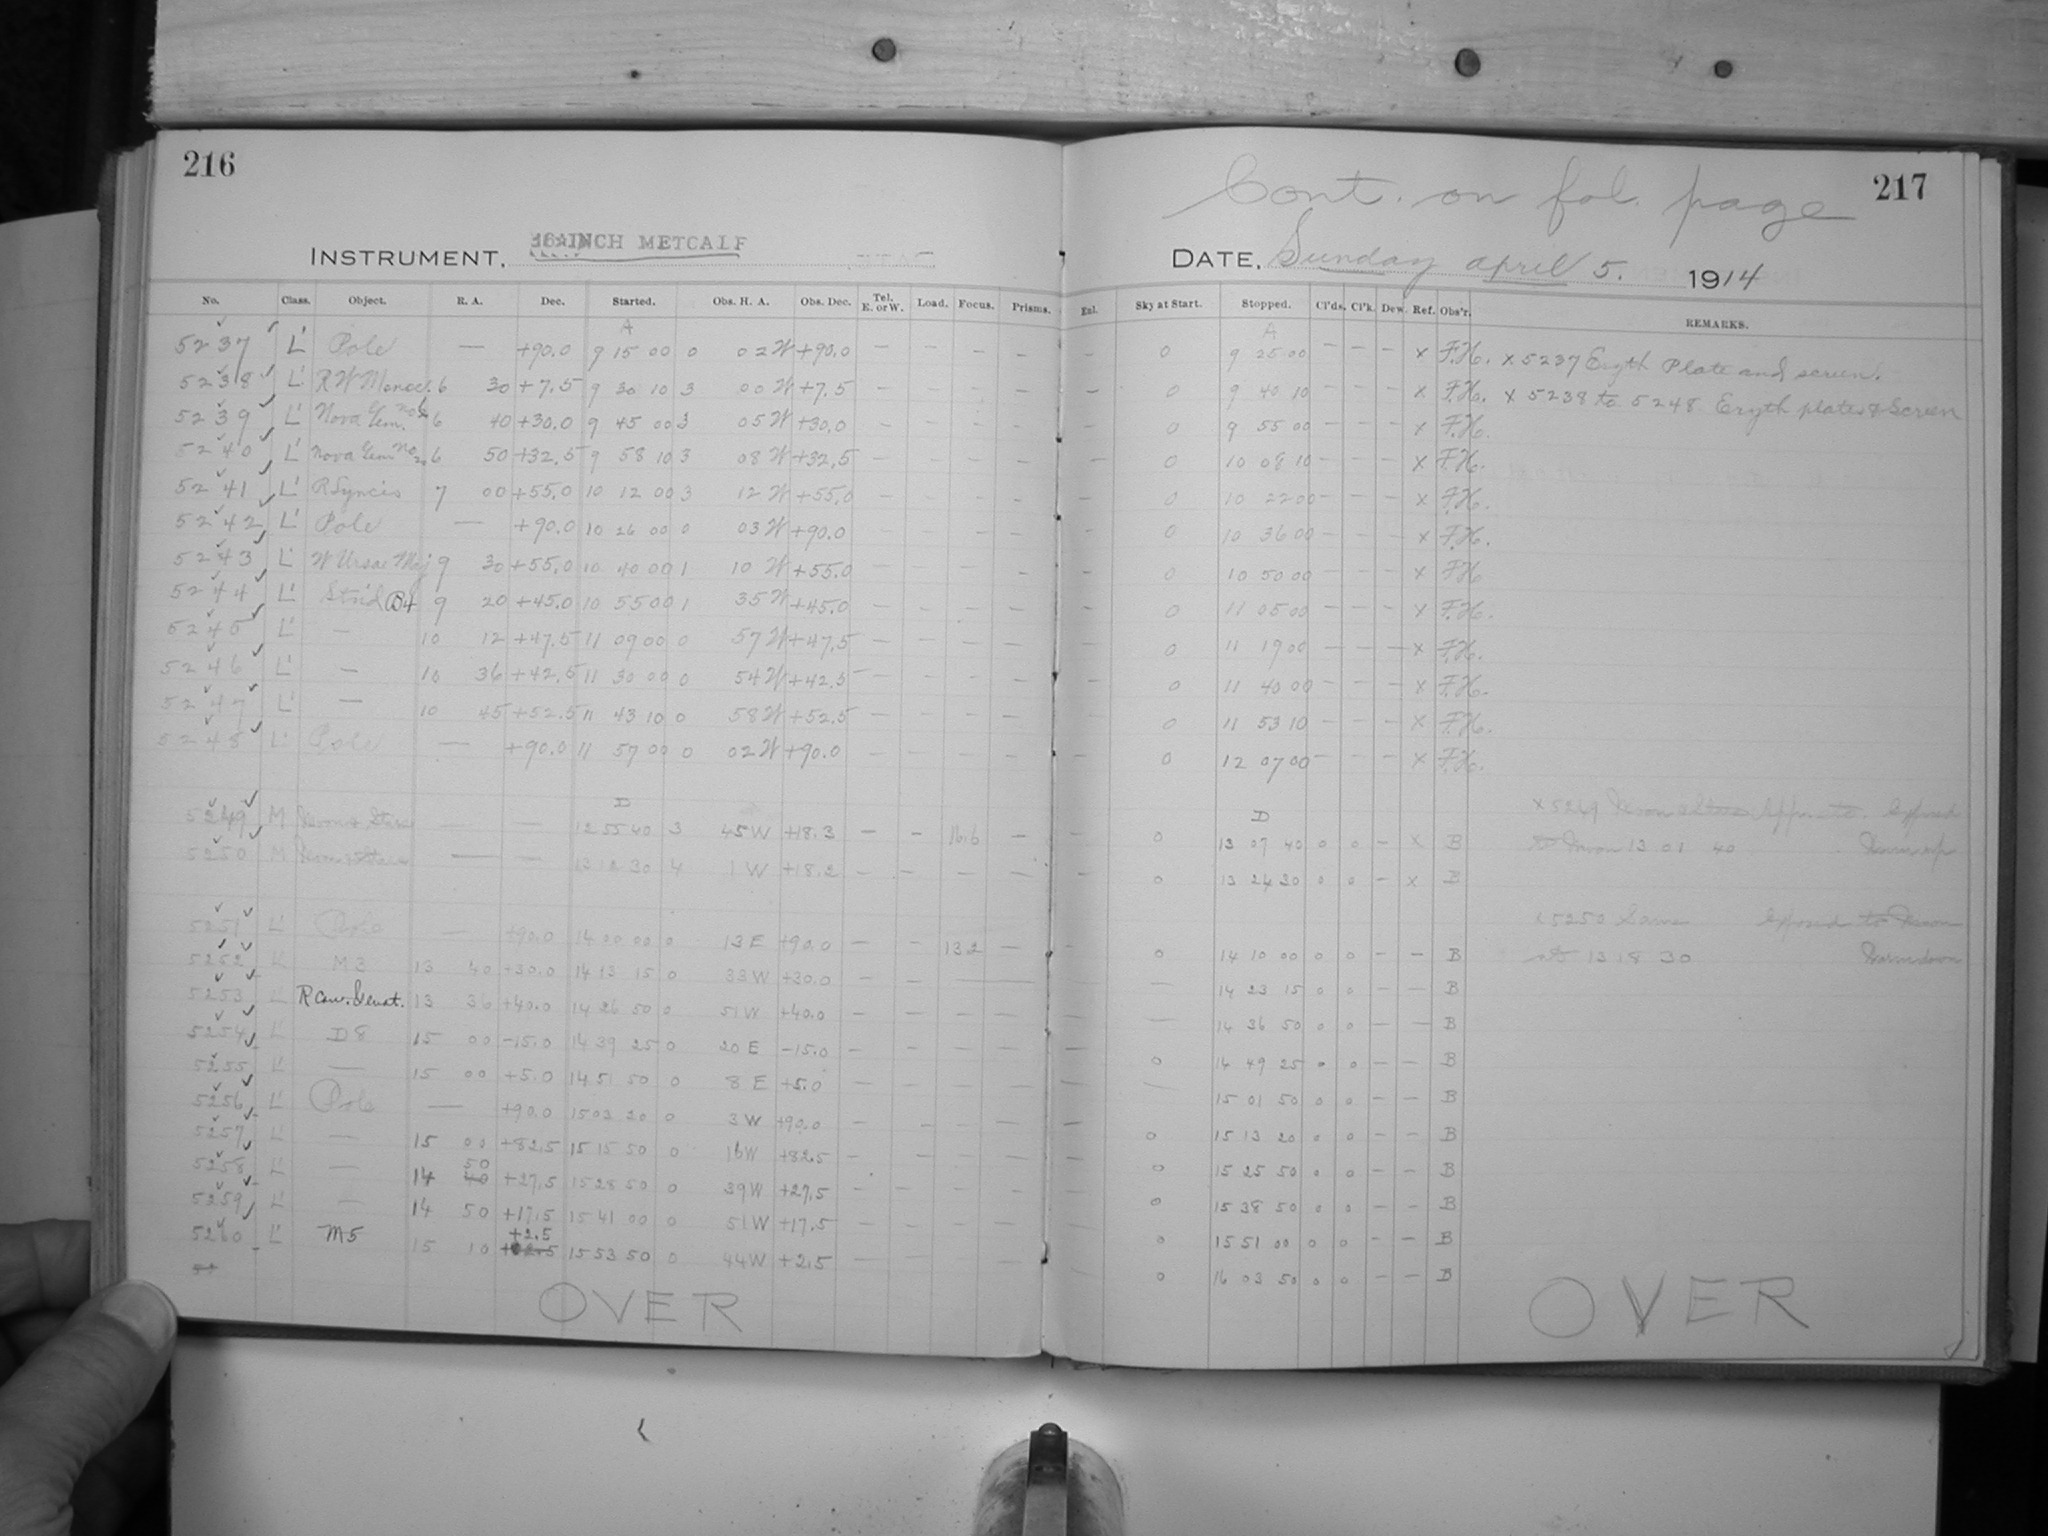 216
INSTRUMENT, 16-INCH METCALF
No. Class. Object. R. A. Dec. Started. Obs. H. A. Obs. Dec. Tel. E. or W. Load. Focus. Prisms.
A
5237 L' Pole — +90.0 9 15 00 0 02 W +90.0 — — — —
5238 L' R W Monoc. 6 30 +7.5 9 30 10 3 00 W +7.5 — — — —
5239 L' Nova Gem. No 6 40 +30.0 9 45 00 3 05 W +30.0 — — — —
5240 L' Nova Gem No 2 6 50 +32.5 9 58 10 3 08 W +32.5 — — — —
5241 L' R Lyncis 7 00 +55.0 10 12 00 3 12 W +55.0 — — — —
5242 L' Pole — +90.0 10 26 00 0 03 W +90.0 — — — —
5243 L' W Ursae Maj 9 30 +55.0 10 40 00 1 10 W +55.0 — — — —
5244 L' St'd B4 9 20 +45.0 10 55 00 1 35 W +45.0 — — — —
5245 L' — 10 12 +47.5 11 09 00 0 57 W +47.5 — — — —
5246 L' — 10 36 +42.5 11 30 00 0 54 W +42.5 — — — —
5247 L' — 10 45 +52.5 11 43 10 0 58 W +52.5 — — — —
5248 L' Pole — +90.0 11 57 00 0 02 W +90.0 — — — —
D
5249 M Moon & Stars — — 12 55 40 3 45 W +18.3 — — 16.6 —
5250 M Moon & Stars — — 13 12 30 4 1 W +18.2 — — — —
5251 L' Pole — +90.0 14 00 00 0 13 E +90.0 — — 13.2 —
5252 L' M 3 13 40 +30.0 14 13 15 0 33 W +30.0 — — — —
5253 L' R Can. Venat. 13 36 +40.0 14 26 50 0 51 W +40.0 — — — —
5254 L' D8 15 00 -15.0 14 39 25 0 20 E -15.0 — — — —
5255 L' — 15 00 +5.0 14 51 50 0 8 E +5.0 — — — —
5256 L' Pole — +90.0 15 03 20 0 3 W +90.0 — — — —
5257 L' — 15 00 +82.5 15 15 50 0 16 W +82.5 — — — —
5258 L' — 14 50 40 +27.5 15 28 50 0 39 W +27.5 — — — —
5259 L' — 14 50 +17.5 15 41 00 0 51 W +17.5 — — — —
5260 L' M5 15 10 +2.5 15 53 50 0 44 W +2.5 — — —
OVER
Cont. on fol. page 217
DATE, Sunday April 5. 1914
Enl. Sky at Start. Stopped. Cl'ds. Cl'k. Dew. Ref. Obs'r. REMARKS.
A
— 0 9 25 00 — — — x F.H. x 5237 Eryth Plate and screen.
— 0 9 40 10 — — — x F.H. x 5238 to 5248 Eryth plates & Screen
— 0 9 55 00 — — — x F.H.
— 0 10 08 10 — — — x F.H.
— 0 10 22 00 — — — x F.H.
— 0 10 36 00 — — — x F.H.
— 0 10 50 00 — — — x F.H.
— 0 11 05 00 — — — x F.H.
— 0 11 19 00 — — — x F.H.
— 0 11 40 00 — — — x F.H.
— 0 11 53 10 — — — x F.H.
— 0 12 07 00 — — — x F.H.
D
x 5249 Moon & Stars Exposed
— 0 13 07 40 0 0 — x B to Moon 13 01 40
— 0 13 24 30 0 0 — x B
x 5250 Same Exposed to Moon
— 0 14 10 00 0 0 — — B at 13 18 30
— — 14 23 15 0 0 — — B
— — 14 36 50 0 0 — — B
— 0 14 49 25 0 0 — — B
— — 15 01 50 0 0 — — B
— 0 15 13 20 0 0 — — B
— 0 15 25 50 0 0 — — B
— 0 15 38 50 0 0 — — B
— 0 15 51 00 0 0 — — B
— 0 16 03 50 0 0 — — B
OVER